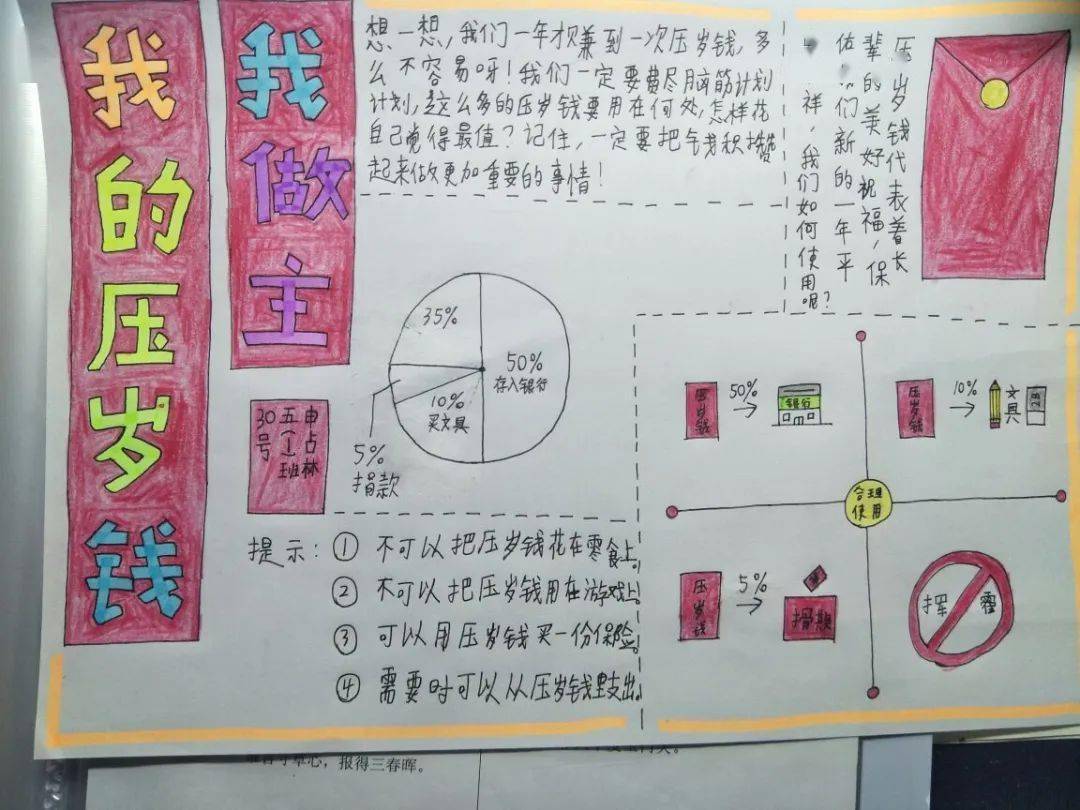 我的压岁钱
我做主
申占林
五(一)班
30号
想一想,我们一年才攒到一次压岁钱,多
么不容易呀!我们一定要费尽脑筋计划
计划,这么多的压岁钱要用在何处,怎样花
自己觉得最值?记住,一定要把钱积攒
起来做更加重要的事情!
压岁钱代表着长
辈的美好祝福,保
佑我们新的一年平
祥,我们如何使用呢?
35%
50%
存入银行
10%
买文具
5%
捐款
提示:① 不可以把压岁钱花在零食上。
② 不可以把压岁钱用在游戏上。
③ 可以用压岁钱买一份保险。
④ 需要时可以从压岁钱里支出。
压岁钱
50%
银行
压岁钱
10%
文具
合理
使用
压岁钱
5%
捐款
挥霍